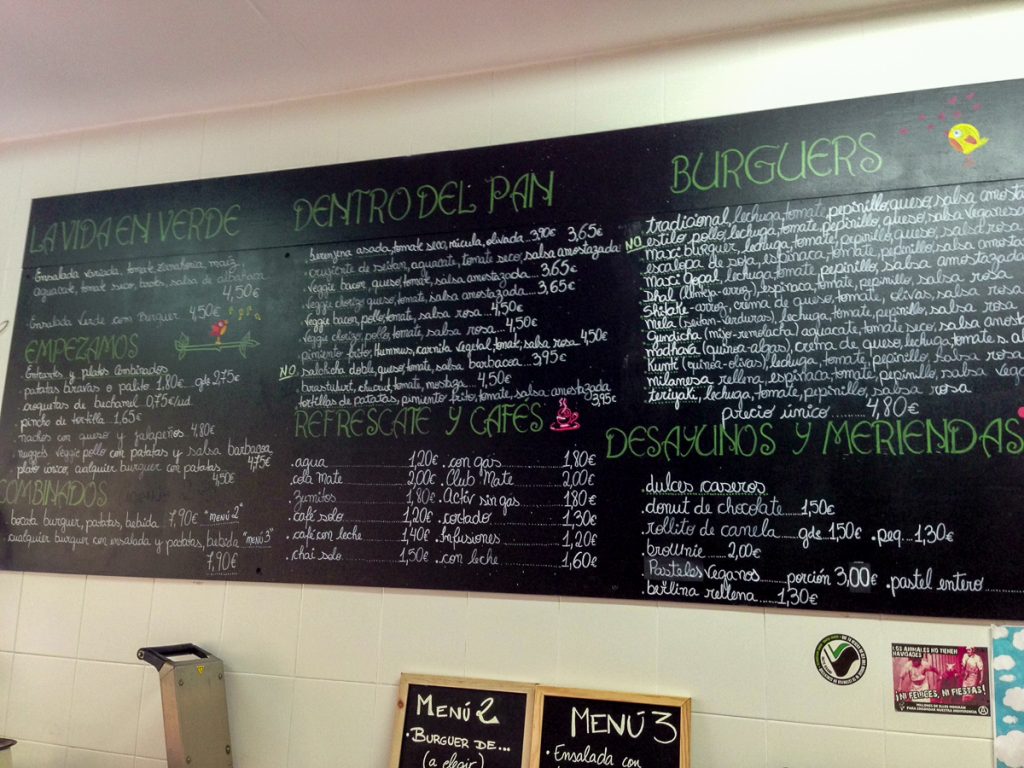 LA VIDA EN VERDE
Ensalada variada, tomate zanahoria, maíz,
aguacate, tomate seco, brotes, salsa de
4,50€
Ensalada Verde con Burguer 4,50€
EMPEZAMOS
Entrantes y platos combinados
patatas bravas o palito 1,80€ gde 2,75€
croquetas de bechamel 0,75€/ud
pincho de tortilla 1.65€
nachos con queso y jalapeños 4,80€
nuggets veggie pollo con patatas y salsa barbacoa
4,75€
plato único, cualquier burguer con patatas
4,50€
COMBINADOS
bocata burguer, patatas, bebida 7,90€ "MENÚ 2"
cualquier burguer con ensalada y patatas, bebida "MENÚ 3"
7,90€
DENTRO DEL PAN
berenjena asada, tomate seco, rúcula, olivada...3,90€ 3,65€
crujiente de seitan, aguacate, tomate seco, salsa amostazada
veggie bacon, queso, tomate, salsa amostazada....3,65€
veggie chorizo, queso, tomate, salsa amostazada....3,65€
veggie bacon, pollo, tomate, salsa rosa....4,50€
veggie chorizo, pollo, tomate, salsa rosa....4,50€
pimiento frito, Hummus, carnita vegetal, tomat, salsa rosa 4,50€
NO salchicha doble, queso, tomate, salsa barbacoa 3,95€
bratsturt, chucrut, tomate, mostaza... 4,50€
tortillas de patatas, pimiento frito, tomate, salsa amostazada
3,95€
REFRESCATE Y CAFES
.agua 1,20€ .con gas 1,80€
cola Mate 2,00€ .Club Mate 2,00€
Zumitos 1,80€ .Activ sin gas 1,80€
.café solo 1,20€ .cortado 1,30€
.café con leche 1,40€ .Infusiones 1,20€
.chai solo 1,50€ .con leche 1,60€
BURGUERS
tradicional, lechuga, tomate, pepinillo, queso, salsa amosta
NO estilo pollo, lechuga, tomate, pepinillo, queso, salsa veganesa
Maxi burguer, lechuga, tomate, pepinillo, queso, salsa rosa
escalopa de soja, espinaca, tomate, pepinillo, salsa amosta
Maxi Gopal, lechuga, tomate, pepinillo, salsa amostazada
Dhal (lenteja-arroz), espinaca, tomate, pepinillo, salsa rosa
Shitake-arroz, crema de queso, tomate, olivas, salsa rosa
Mela (seitan-verduras), lechuga, tomate, pepinillo, salsa rosa
Gundicha (mijo-remolacha) aguacate, tomate seco, salsa amosta
Madhava (quinoa-algas), crema de queso, lechuga, tomate s. a
Kunti (quinoa-olivas), lechuga, tomate, pepinillo, salsa rosa
milanesa rellena, espinaca, tomate, pepinillo, salsa vega
teriyaki, lechuga, tomate, pepinillo, salsa rosa
precio único......4,80€
DESAYUNOS Y MERIENDAS
.dulces caseros
.donut de chocolate 1,50€
rollito de canela gde 1,50€ .peq 1,30€
.brownie 2,00€
.Pasteles Veganos porción 3,00€ .pastel entero
.berlina rellena 1,30€
MENÚ 2
• BURGUER DE...
(a elegir)
MENÚ 3
• Ensalada con
LOS ANIMALES NO TIENEN
NAVIDADES
¡NI FELICES, NI FIESTAS!